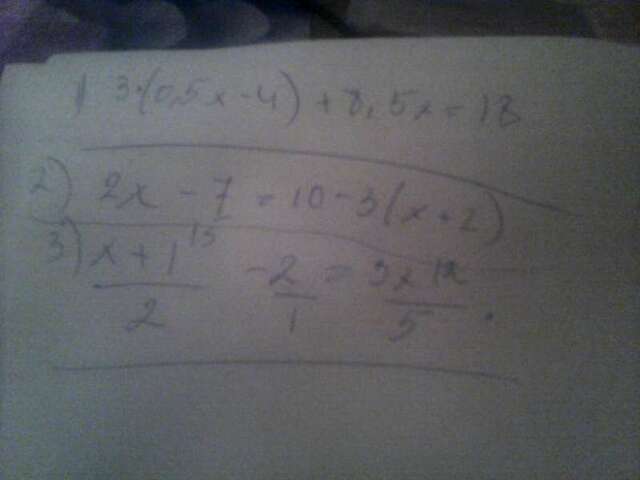 1 3·(0,5x-4)+8,5x=18
2) 2x - 7 = 10 - 3(x+2)
3) x + 1 - 2 = 3x
2 1 5